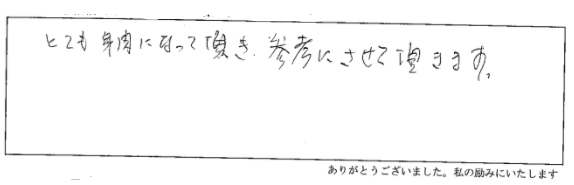 とても身肉になって頂き、参考にさせて頂きます。
ありがとうございました。私の励みにいたします